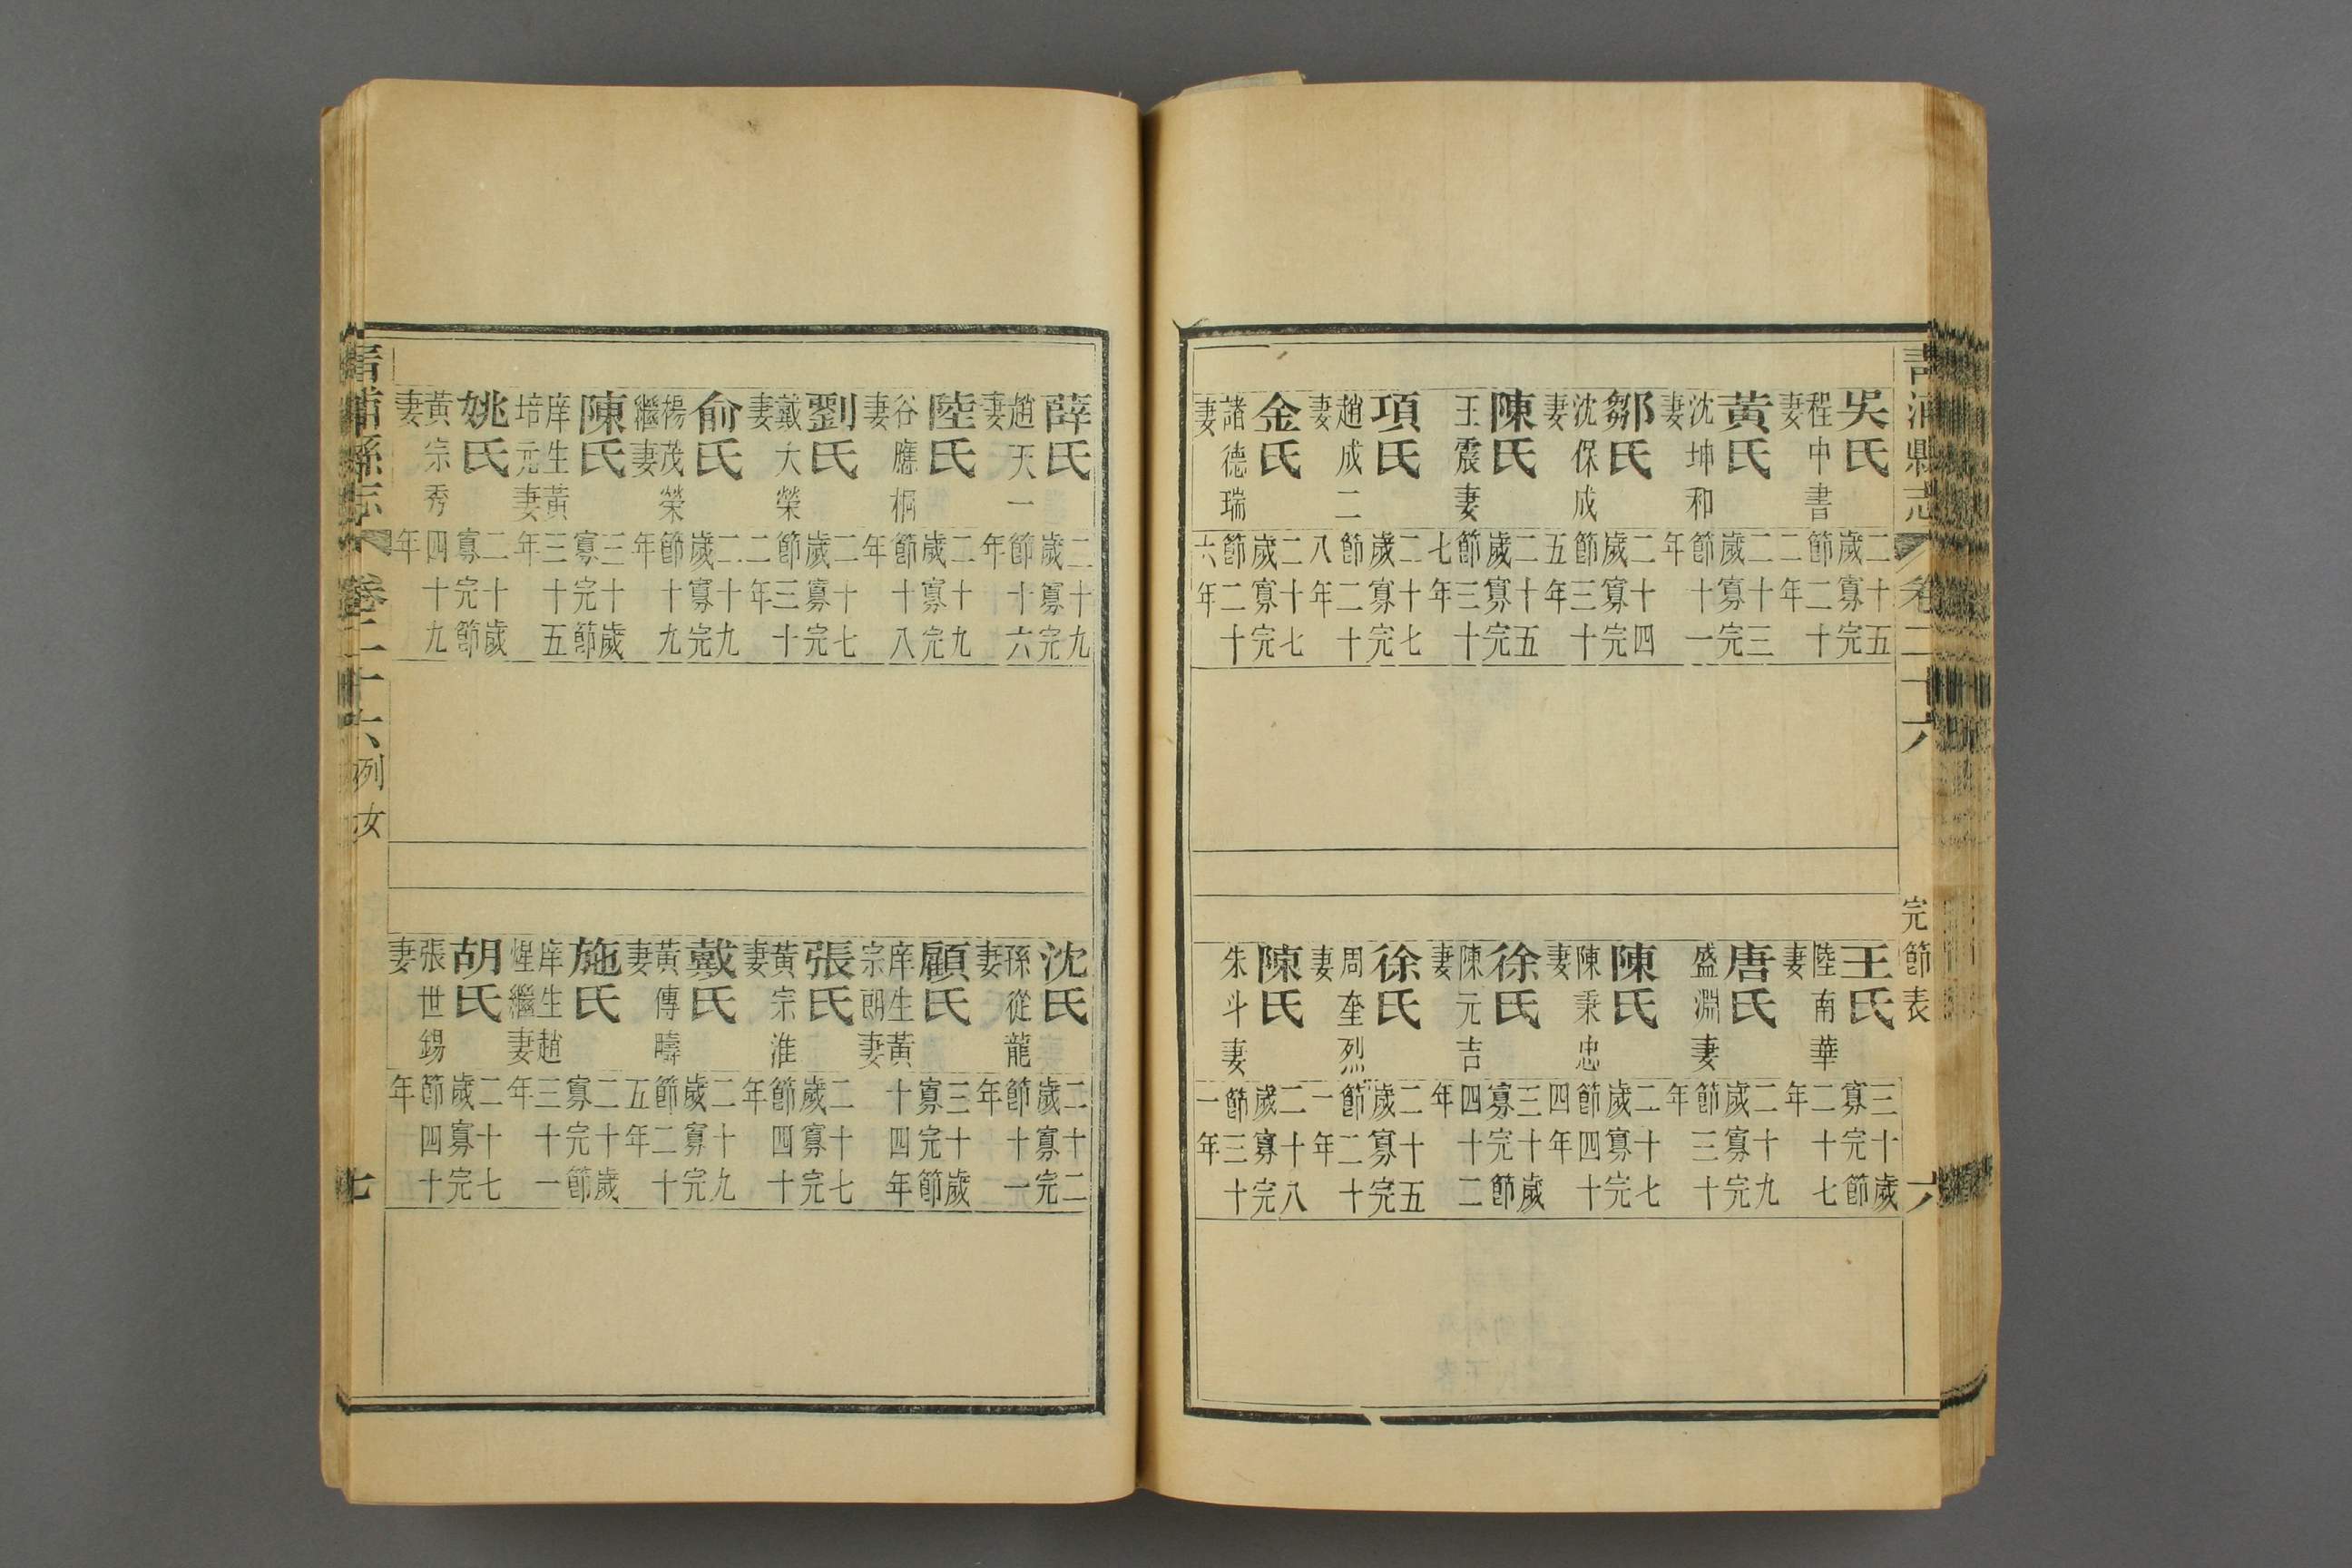 青浦縣志 卷二十六 完節表 六
吳氏 程中書妻 二十五歲寡完節二十二年
黃氏 沈坤和妻 二十三歲寡完節十一年
鄒氏 沈保成妻 二十四歲寡完節三十五年
陳氏 王震妻 二十五歲寡完節三十七年
項氏 趙成二妻 二十七歲寡完節二十八年
金氏 諸德瑞妻 二十七歲寡完節二十六年
王氏 陸南華妻 三十歲寡完節二十七年
唐氏 盛淵妻 二十九歲寡完節三十年
陳氏 陳秉忠妻 二十七歲寡完節四十四年
徐氏 陳元吉妻 三十歲寡完節四十二年
徐氏 周奎烈妻 二十五歲寡完節二十一年
陳氏 朱斗妻 二十八歲寡完節三十一年
薛氏 趙天一妻 二十九歲寡完節十六年
陸氏 谷應桐妻 二十九歲寡完節十八年
劉氏 戴大榮妻 二十七歲寡完節三十二年
俞氏 楊茂榮繼妻 二十九歲寡完節十九年
陳氏 庠生黃培元妻 三十歲寡完節三十五年
姚氏 黃宗秀妻 二十歲寡完節四十九年
沈氏 孫從龍妻 二十二歲寡完節十一年
顧氏 庠生黃宗朗妻 三十歲寡完節十四年
張氏 黃宗淮妻 二十七歲寡完節四十年
戴氏 黃傳疇妻 二十九歲寡完節二十五年
施氏 庠生趙煋繼妻 二十歲寡完節三十一年
胡氏 張世錫妻 二十七歲寡完節四十年
青浦縣志 卷二十六 列女 七